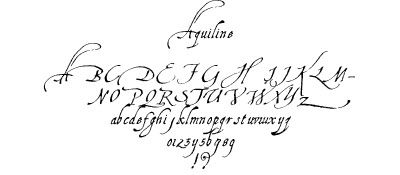 Aquiline
A B C D E F G H I J K L M
N O P Q R S T U V W X Y Z
abcdefghijklmnopqrstuvwxyz
0123456789
!?